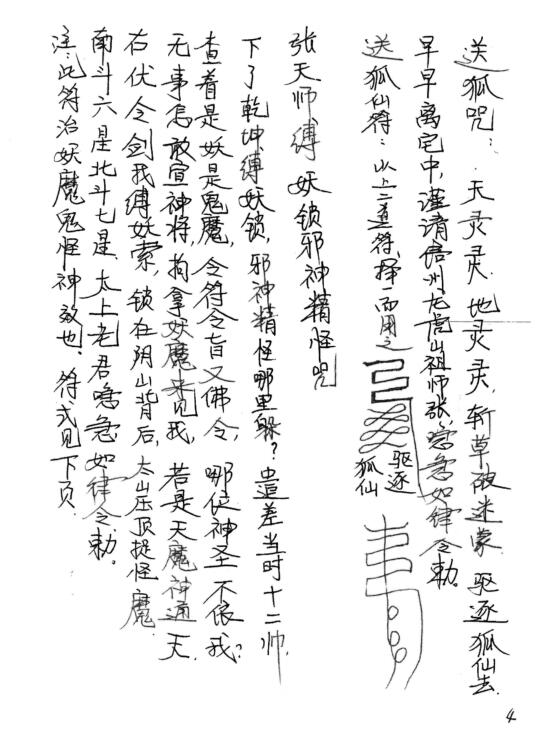 送狐咒：天灵灵，地灵灵，斩草破迷蒙，驱逐狐仙去，
早早离宅中，谨请信州龙虎山祖师张，喼急如律令勅。
送狐仙符：以上二道符，择一而用之
驱逐
狐仙
张天师缚妖锁邪神精怪咒
下了乾坤缚妖锁，邪神精怪哪里躲？遣差当时十二帅，
查看是妖是鬼魔，令符令旨又佛令，哪位神圣不依我？
无事怎敢宣神将，拘拿妖魔来见我，若是天魔神通天，
右伏令剑我缚妖索，锁在阴山背后，太山压顶捉怪魔，
南斗六星北斗七星，太上老君喼急如律令勅。
注：此符治妖魔鬼怪神效也，符式见下页。
4